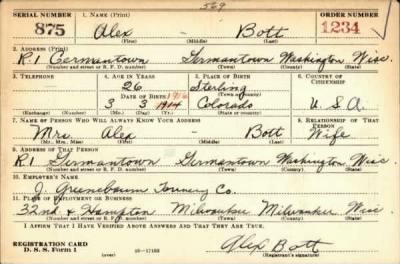 569
SERIAL NUMBER 1. NAME (Print) ORDER NUMBER
875 Alex Bott 1234
(First) (Middle) (Last)
2. ADDRESS (Print)
R.1 Germantown Germantown Washington Wisc.
(Number and street or R. F. D. number) (Town) (County) (State)
3. TELEPHONE 4. AGE IN YEARS 5. PLACE OF BIRTH 6. COUNTRY OF CITIZENSHIP
26 Sterling
DATE OF BIRTH (Town or county)
3 3 1914 Colorado U.S.A.
(Exchange) (Number) (Mo.) (Day) (Yr.) (State or country)
7. NAME OF PERSON WHO WILL ALWAYS KNOW YOUR ADDRESS 8. RELATIONSHIP OF THAT PERSON
Mrs Alex Bott Wife
(Mr., Mrs., Miss) (First) (Middle) (Last)
9. ADDRESS OF THAT PERSON
R1 Germantown Germantown Washington Wisc.
(Number and street or R. F. D. number) (Town) (County) (State)
10. EMPLOYER'S NAME
J. Greenebaum Tannery Co.
11. PLACE OF EMPLOYMENT OR BUSINESS
32nd & Hampton Milwaukee Milwaukee Wisc
(Number and street or R. F. D. number) (Town) (County) (State)
I AFFIRM THAT I HAVE VERIFIED ABOVE ANSWERS AND THAT THEY ARE TRUE.
REGISTRATION CARD
D. S. S. Form 1 (over) 16-17105 Alex Bott